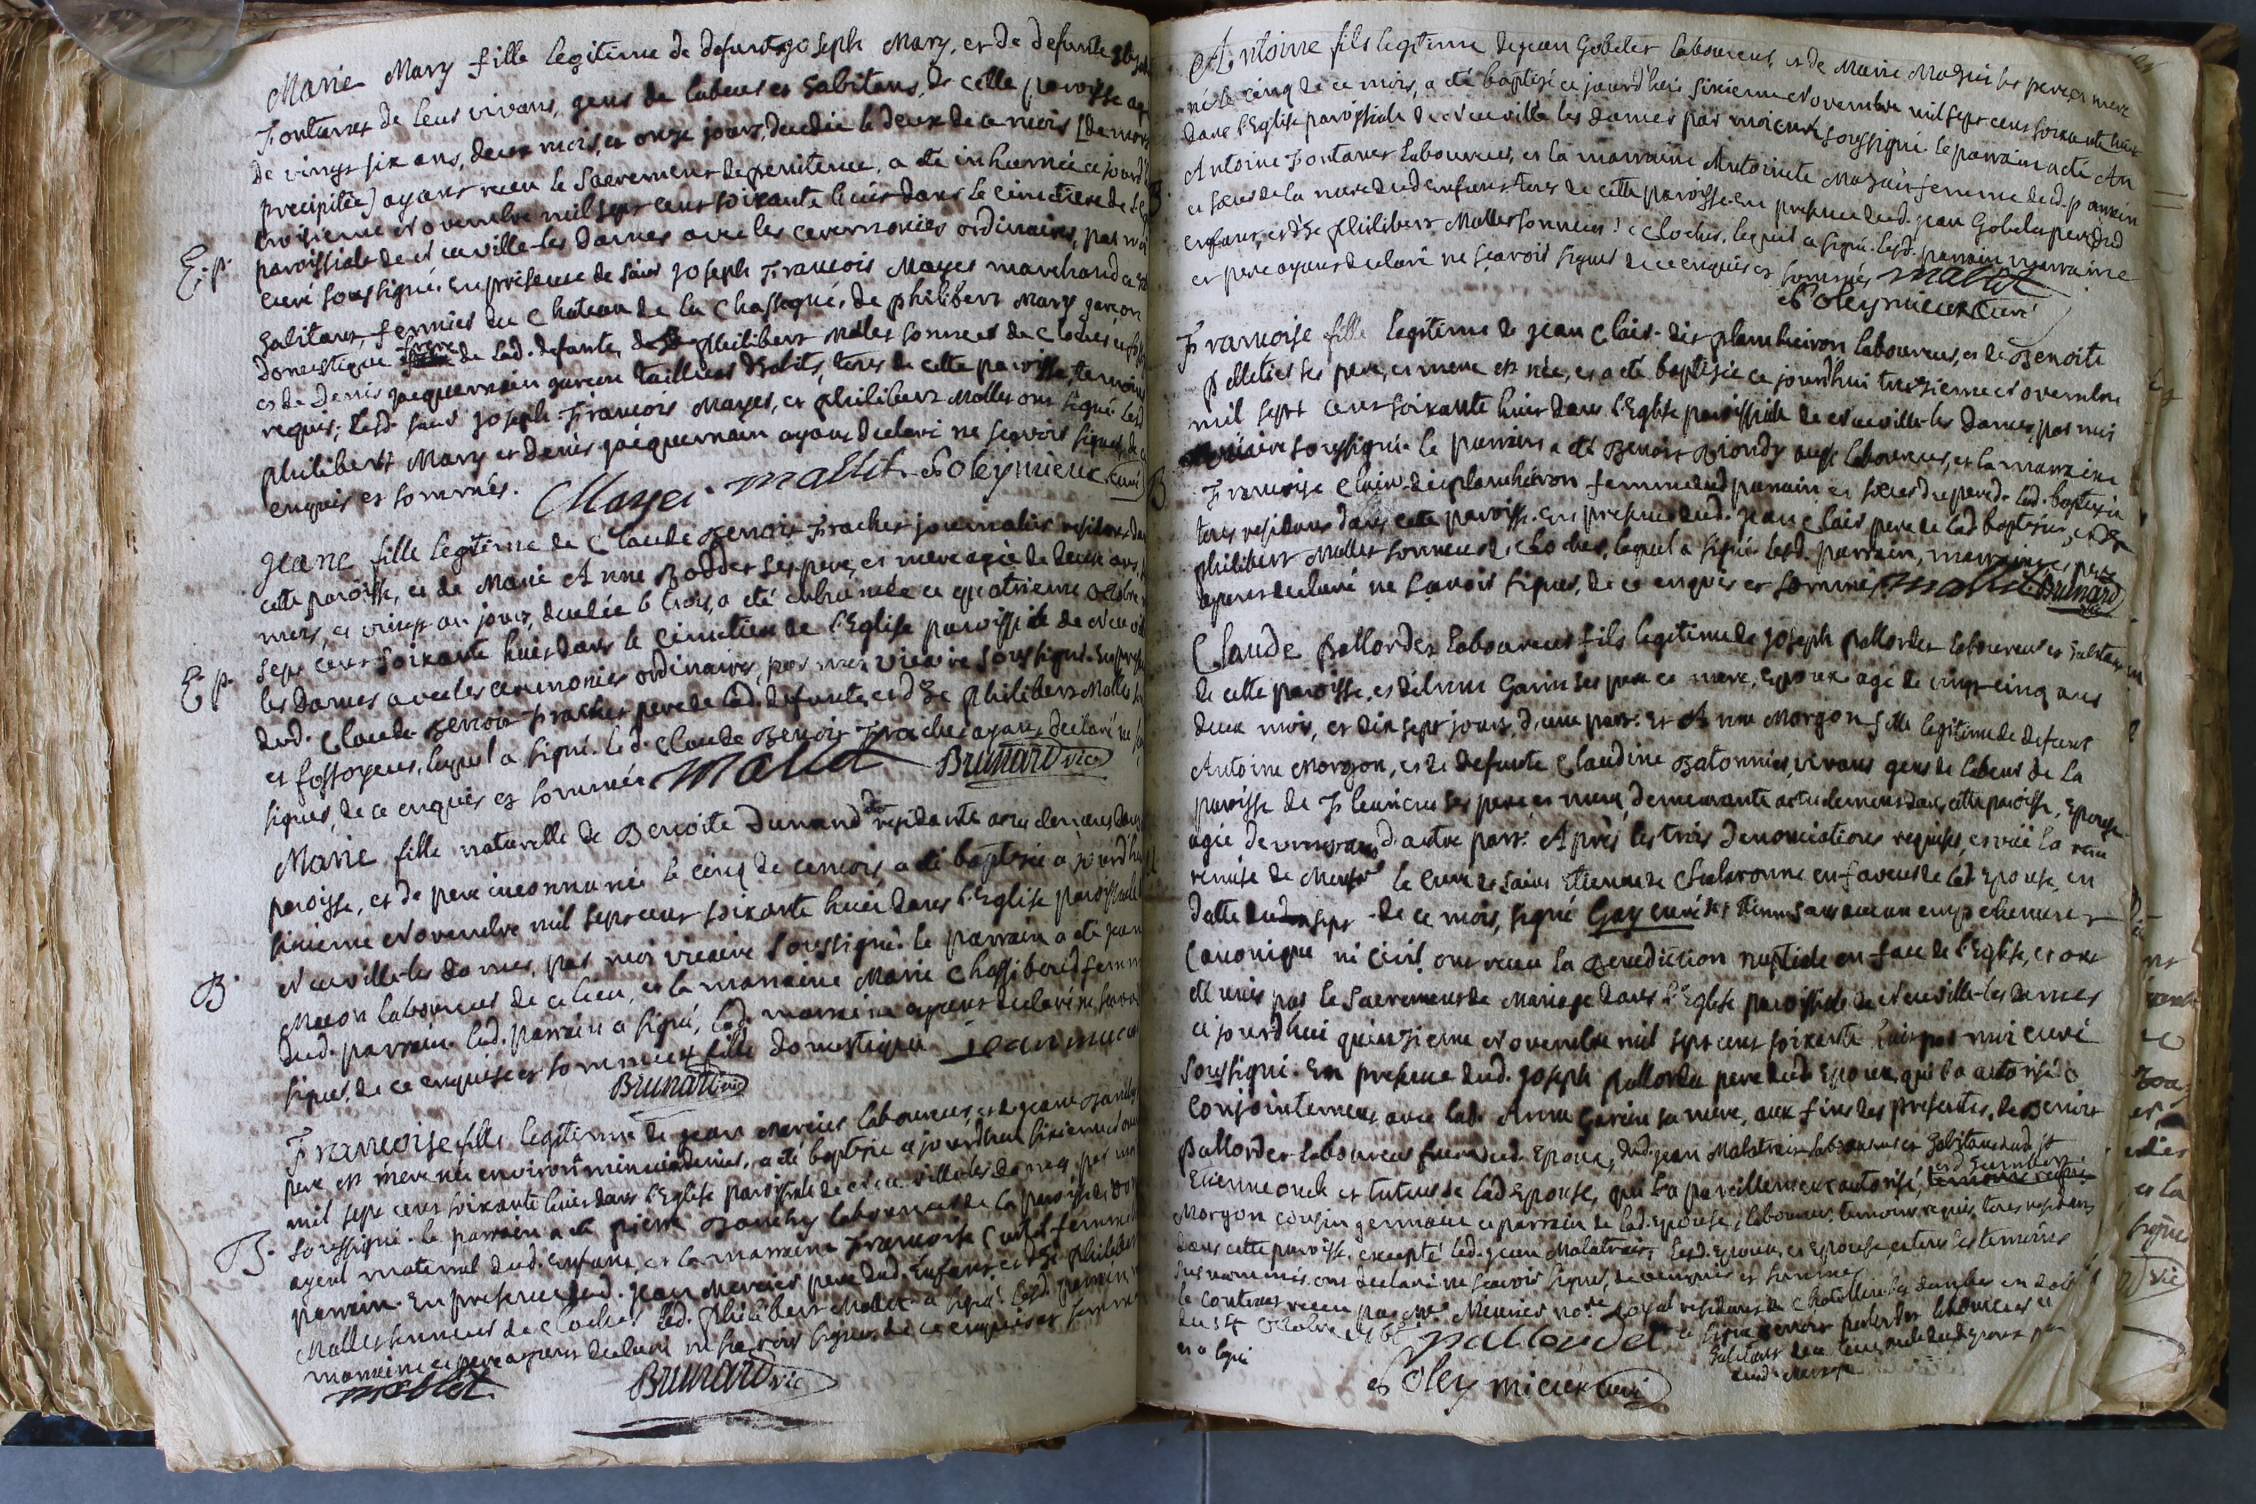 Marie Mary fille legitime de defunt joseph Mary, et de defunte
Fontanet de leur vivans, gens de labeur et habitans, de cette paroisse
de vingt six ans, deux mois, et onze jours, decedée le deux de ce mois (de mort
precipitée) ayant reçeu le Sacrement de penitence, a été inhumée ce jourd'h
troisieme Novembre mil sept cent soixante huit dans le cimetiere de
E. p.
paroissiale de Neuville les Dames avec les ceremonies ordinaires, par moi
curé soussigné. En présence de sieur joseph François Mayet marchand
habitant, fermier du Chateau de la Chassagne, de philibert Mary garçon
domestique frere de lad. defunte, de philibert Mallet sonneur de cloches et
et de Denis jacquemain garcon tailleur d'habits, tous de cette paroisse, temoins
requis; led. sieur joseph François Mayet, et philibert Mallet ont signé lesd.
philibert Mary et Denis jacquemain ayant declaré ne sçavoir signer, de
enquis et sommés. Mayet mallet Poleymieux curé
jeane fille legitime de Claude Benoit Frachet journalier residant
cette paroisse, et de Marie Anne Bodder ses pere, et mere agée de deux ans,
mois, et vingt un jours, decedée le trois, a été enhumée ce quatrieme
sept cent soixante huit dans le cimetiere de l'Eglise paroissiale de
E. p.
les Dames avec les ceremonies ordinaires, par moi vicaire soussigné. En
dud. Claude Benoit Frachet pere de lad. defunte, et de philibert Mallet
et fossoyeur, lequel a signé. led. Claude Benoit Frachet ayant declaré ne
signer, de ce enquis et sommé mallet Brunard vic
Marie fille naturelle de Benoite Dunand residante
paroisse, et de pere inconnu née le cinq de ce mois, a été baptisée ce jourd'hui
sixieme Novembre mil sept cent soixante huit dans l'Eglise paroissiale
Neuville-les Dames, par moi vicaire soussigné. le parrain a été jean
B.
laboureur de ce lieu, et la marraine Marie
dud. parrain. led. parrain a signé, lad. marraine ayant declaré ne sçavoir
signer, de ce enquise et sommée fille domestique jean
Brunard vic
Françoise fille legitime de jean Mercier laboureur, et de jeane
pere et mere née environ minuit dernier, a été baptisée ce jourd'hui sixieme
mil sept cent soixante huit dans l'Eglise paroissiale de Neuville les Dames, par
soussigné. le parrain a été pierre laboureur de la paroisse de
B.
ayeul maternel dud. Enfant, et la marraine Françoise femme
parrain. En presence dud. jean Mercier pere dud. Enfant et de philibert
Mallet sonneur de cloches led. philibert Mallet a signé. lesd. parrain
marraine et pere ayant declaré ne sçavoir signer, de ce enquis et sommés
mallet Brunard vic
Antoine fils legitime de jean Gobelet laboureur, et de Marie Mazuir ses pere, et mere
né le cinq de ce mois, a été baptisé ce jourd'hui sixieme Novembre mil sept cent soixante huit
dans l'Eglise paroissiale de Neuville les Dames par moi curé soussigné. le parrain a été
B.
Antoine Fontanet laboureur, et la marraine Antoinette Mazuir femme dud. parrain
et soeur de la mere dud. enfant tous de cette paroisse. En presence dud. jean Gobelet pere dud.
enfant, et de philibert Mallet sonneur de cloches, lequel a signé. lesd. parrain marraine
et pere ayant declaré ne sçavoir signer de ce enquis et sommés mallet
Poleymieux curé
Françoise fille legitime de jean Clair dit plancheiron laboureur, et de Benoite
pelletier ses pere, et mere est née, et a été baptisée ce jourd'hui treizieme Novembre
mil sept cent soixante huit dans l'Eglise paroissiale de Neuville-les Dames, par moi
vicaire soussigné. le parrain a été Benoit aussi laboureur, et la marraine
B.
Françoise Clair dit plancheiron femme dud. parrain et soeur du pere de lad. baptisée
tous residans dans cette paroisse. En presence dud. jean Clair pere de lad. baptisée, et de
philibert Mallet sonneur de cloches, lequel a signé. lesd. parrain, marraine et pere
ayant declaré ne sçavoir signer, de ce enquis et sommés mallet Brunard vic
Claude pallordet laboureur fils legitime de joseph pallordet laboureur et habitant
de cette paroisse, et d'Anne Garin ses pere et mere, Epoux agé de vingt-cinq ans
deux mois, et dix sept jours, d'une part: Et Anne Morgon fille legitime de defunt
Antoine Morgon, et de defunte Claudine Batonnier, vivans gens de labeur de la
paroisse de Fleurieu ses pere et mere, demeurante actuelement dans cette paroisse, Epouse
agée de d'autre part. Après les trois denonciations requises, et vüe la
remise de Messire le Curé de Saint Etienne de Chalaronne en faveur de lad. Epouse, en
datte du sept de ce mois, signé Gay curé de St Etienne sans aucun empechement
Canonique ni Civil ont reçeu la Benediction nuptiale en face de l'Eglise, et ont
été unis par le Sacrement de Mariage dans l'Eglise paroissiale de Neuville-les Dames
ce jourd'hui quinzieme Novembre mil sept cent soixante huit par moi curé
soussigné. En presence dud. joseph pallordet pere dud. Epoux, qui l'a autorisé
conjointement avec lad. Anne Garin sa mere, aux fins des presentes, de Benoit
pallordet laboureur frere dud. Epoux, dud. jean Malatrait laboureur et habitant dud. St
Etienne oncle et tuteur de lad. Epouse, qui l'a pareillement autorisé, temoins requis
Morgon cousin germain et parrain de lad. epouse, laboureur, temoins requis, tous residans
dans cette paroisse, excepté led. jean Malatrait, lesd. epoux, et epouse, et tous les temoins
sus nommés ont declaré ne sçavoir signer, de ce enquis et sommés
le contract reçeu par Me Meunier nore Royal residant à Chatillon les Dombes en date
du 14 Octobre 1768 pallordet a signé Benoit pallordet laboureur et
et a signé
Poleymieux curé